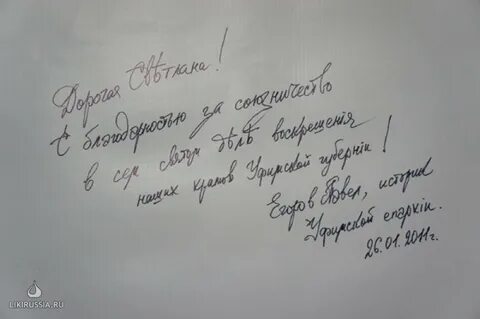 Дорогая Свѣтлана!
С благодарностью за союзничество
в сем святом дѣлѣ воскрешенiя
наших храмов Уфимской губернiи!
Егоров Павел, историк
Уфимской епархiи.
26.01.2011г.
LIKIRUSSIA.RU